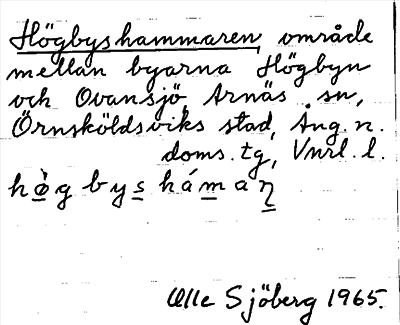 Högbyshammaren, område
mellan byarna Högbyn
och Ovansjö, Arnäs sn,
Örnsköldsviks stad, Ång. n.
doms. tg, Vnrl. l.
hög bysháman
Olle Sjöberg 1965.